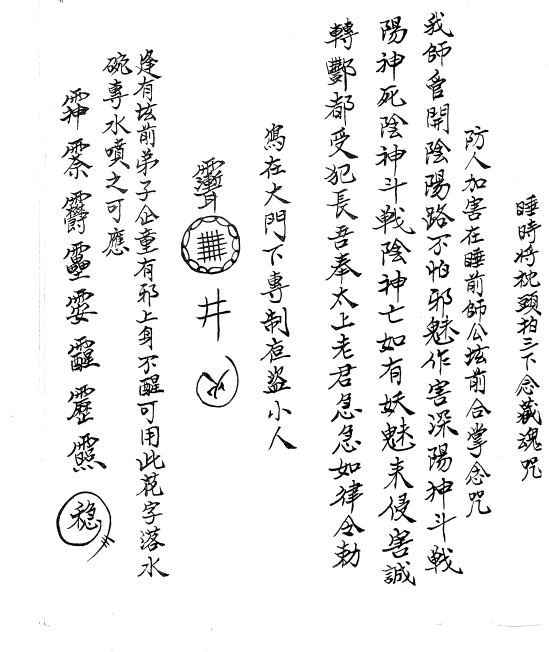 睡時將枕頭拍三下念藏魂咒
防人加害在睡前師公坛前合掌念咒
我師官開陰陽路不怕邪魅作害深陽神斗戦
陽神死陰神斗戦陰神亡如有妖魅来侵害誠
轉酆都受犯長吾奉太上老君急急如律令勅
寫在大門下專制夜盗小人
井
逢有坛前弟子仚童有邪上身不醒可用此花字落水
碗專水噴之可應
穏